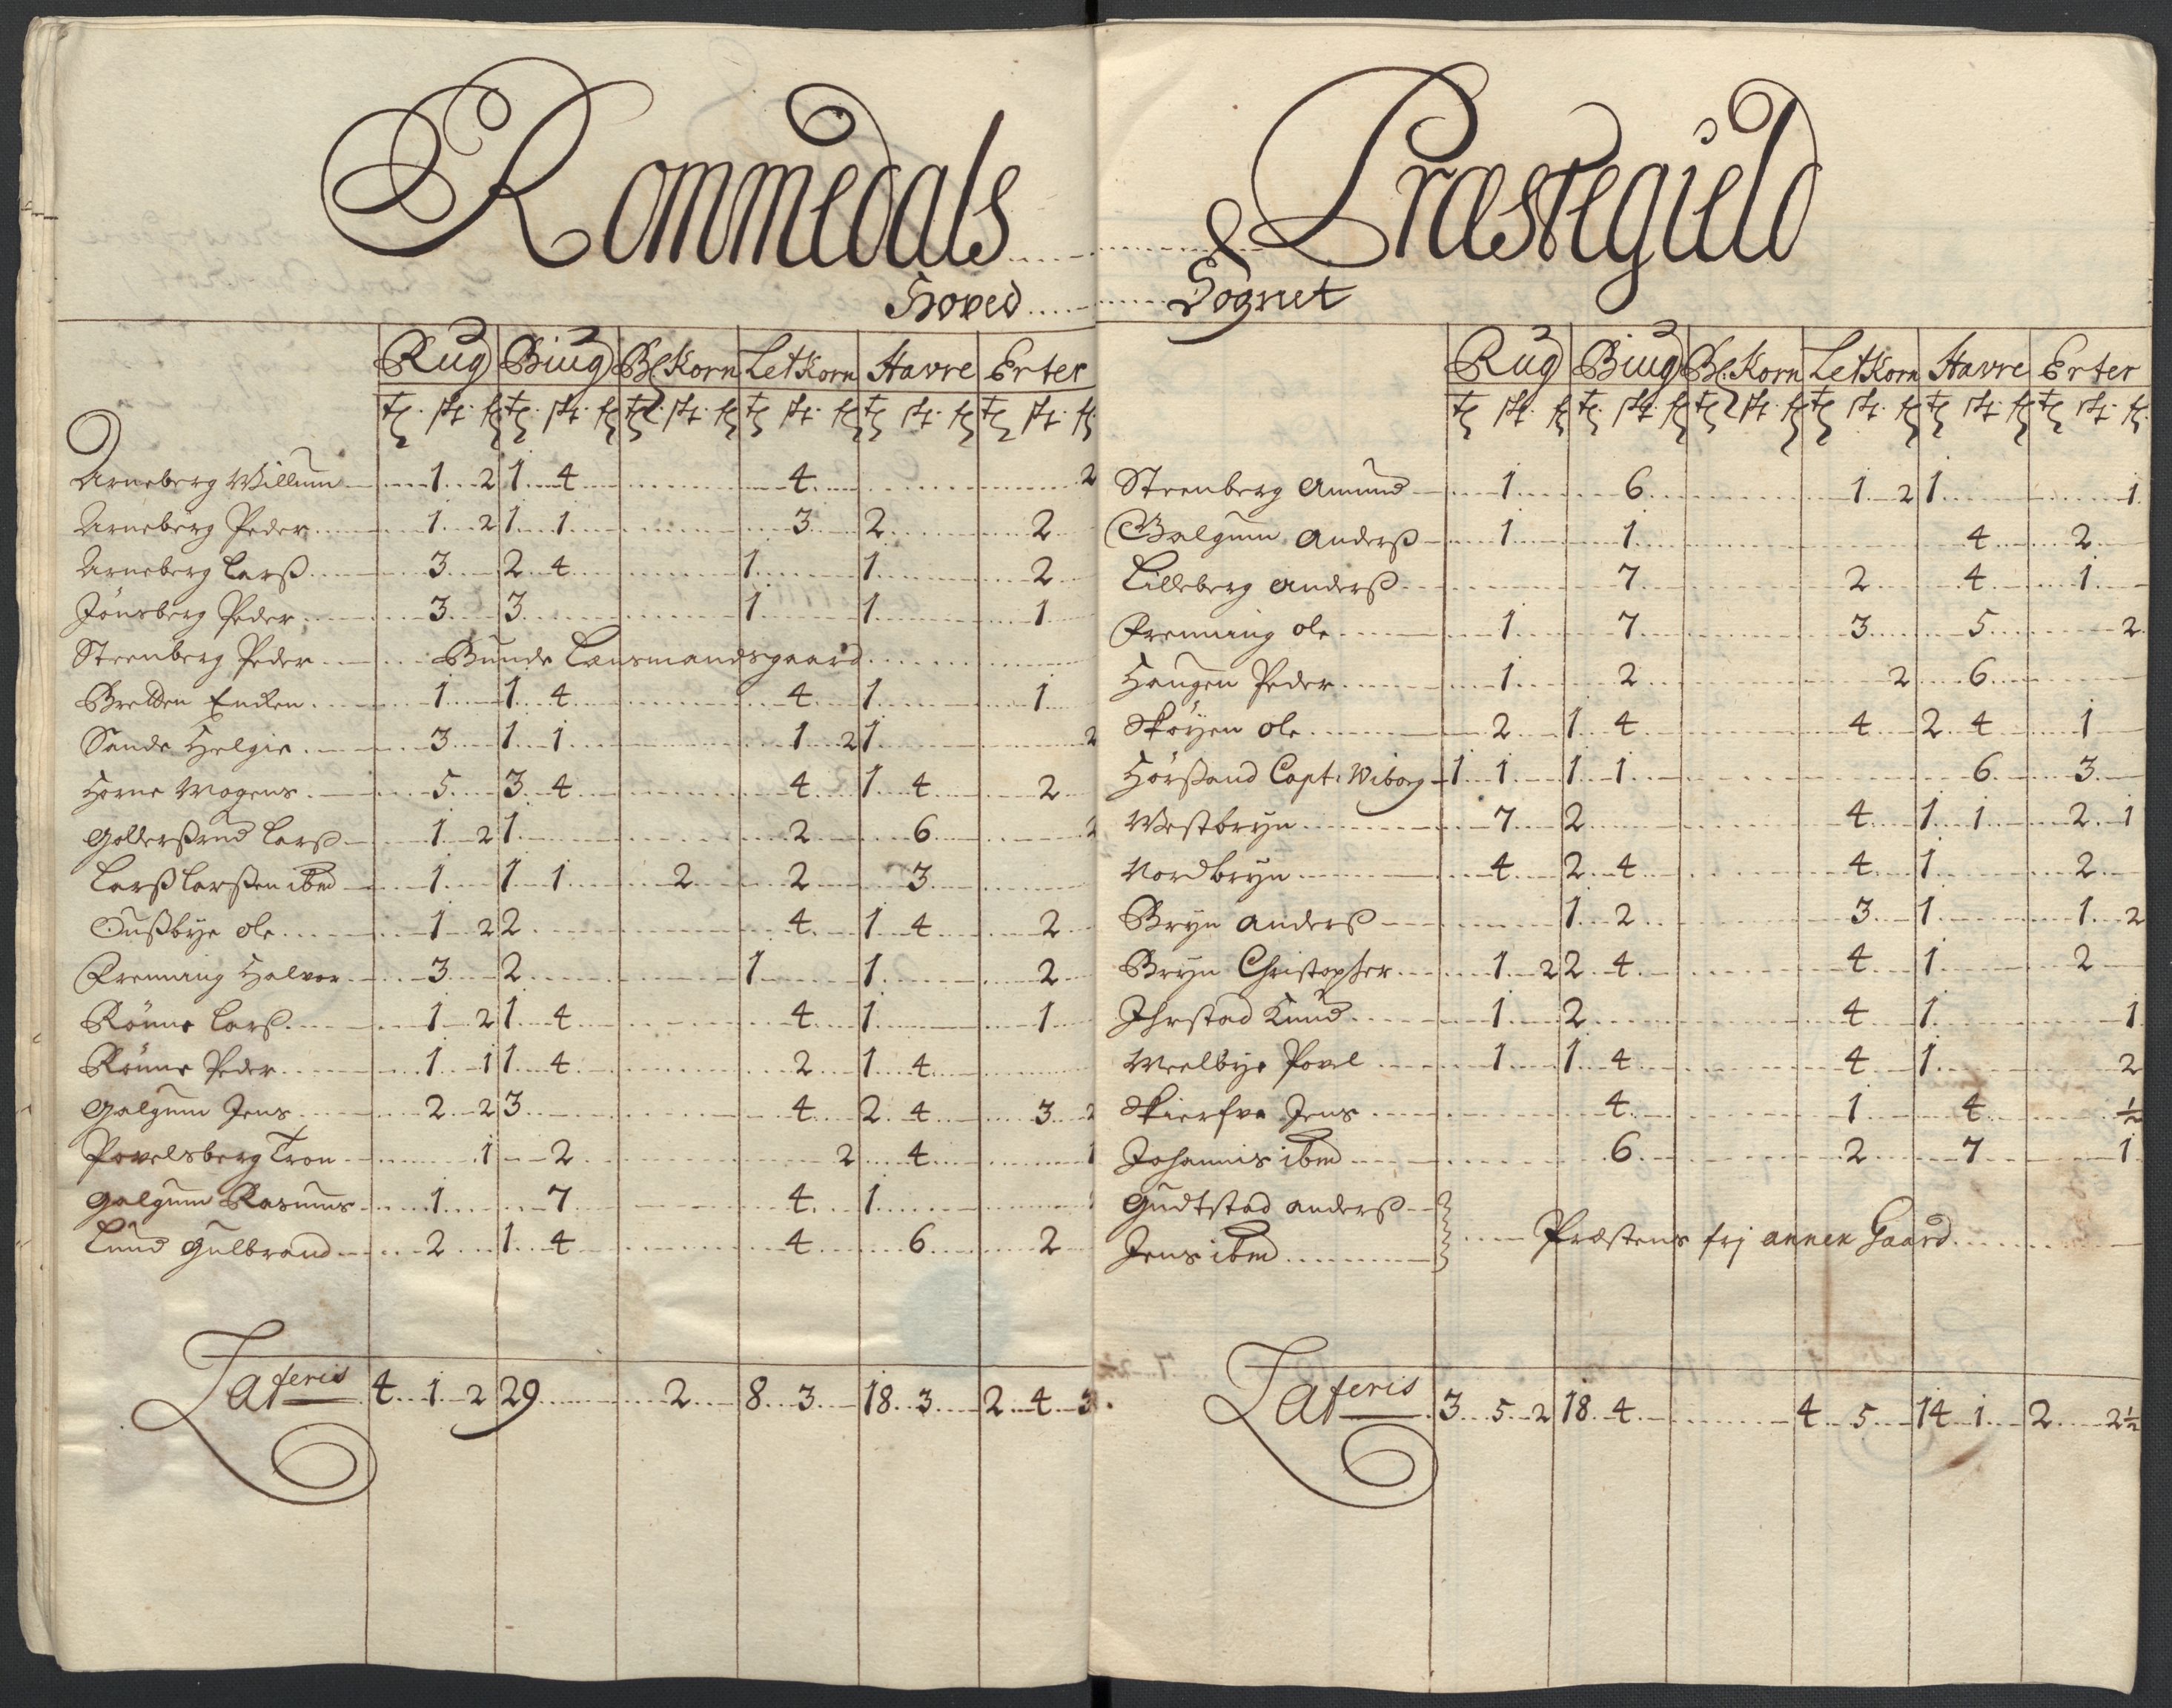 Rommedals
Hoved
Rug Biug Bl. Korn Letkorn Havre Erter
Arneberg Willum 1 2 1 4 4 2
Arneberg Peder 1 2 1 1 3 2 2
Arneberg Larß 3 2 4 1 1 2
Jönsberg Peder 3 3 1 1 1
Steenberg Peder Bunde Lænsmandsgaard
Bretten Encken 1 1 4 4 1 1
Sande Helgie 3 1 1 1 2 1 2
Horne Mogens 5 3 4 4 1 4 2
Golderßrud Larß 1 2 1 2 6 2
Larß Larßen ibm 1 1 1 2 2 3
Oußbye Ole 1 2 2 4 1 4 2
Frenning Halvor 3 2 1 1 2
Rönne Larß 1 2 1 4 4 1 1
Rönne Peder 1 1 1 4 2 1 4
Galgum Jens 2 2 3 4 2 4 3 2
Povelsberg Tron 1 2 2 4 1
Galgum Rasmus 1 7 4 1
Lund Gulbrand 2 1 4 4 6 2
Lateris 4 1 2 29 2 8 3 18 3 2 4 3
Præstegield
Sognet
Rug Biug Bl. Korn Letkorn Havre Erter
Steenberg Amund 1 6 1 2 1 1
Galgum Anderß 1 1 4 2
Lilleberg Anderß 7 2 4 1
Frenning Ole 1 7 3 5 2
Haugen Peder 1 2 2 6
Sköyen Ole 2 1 4 4 2 4 1
Hörßand Capt: Wiborg 1 1 1 1 6 3
Westbryn 7 2 4 1 1 2 1
Nordbryn 4 2 4 4 1 2
Bryn Anderß 1 2 3 1 1 2
Bryn Christopher 1 2 2 4 4 1 2
Ihrstad Knud 1 2 4 1 1
Meelbye Povel 1 1 4 4 1 2
Skierfve Jens 4 1 4 ½
Johannis ibm 6 2 7 1
Gudtstad Anderß
Jens ibm Præstens frj annex Gaard
Lateris 3 5 2 18 4 4 5 14 1 2 2½